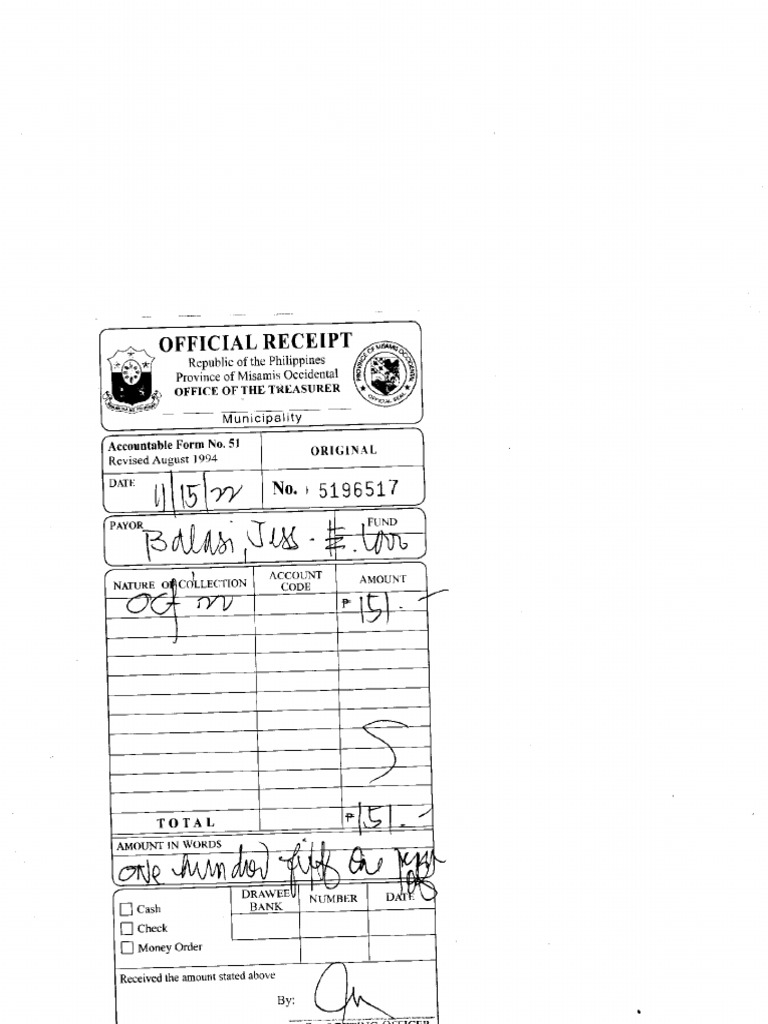 OFFICIAL RECEIPT
Republic of the Philippines
Province of Misamis Occidental
OFFICE OF THE TREASURER
Municipality
PROVINCE OF MISAMIS OCCIDENTAL
OFFICIAL SEAL
Accountable Form No. 51
Revised August 1994
ORIGINAL
DATE 11/15/22
No. 5196517
PAYOR Balasi, Jess
FUND
NATURE OF COLLECTION ACCOUNT CODE AMOUNT
₱ 151.-
TOTAL ₱ 151.-
AMOUNT IN WORDS
one hundred fifty one
DRAWEE BANK NUMBER DATE
Cash
Check
Money Order
Received the amount stated above
By:
OFFICER